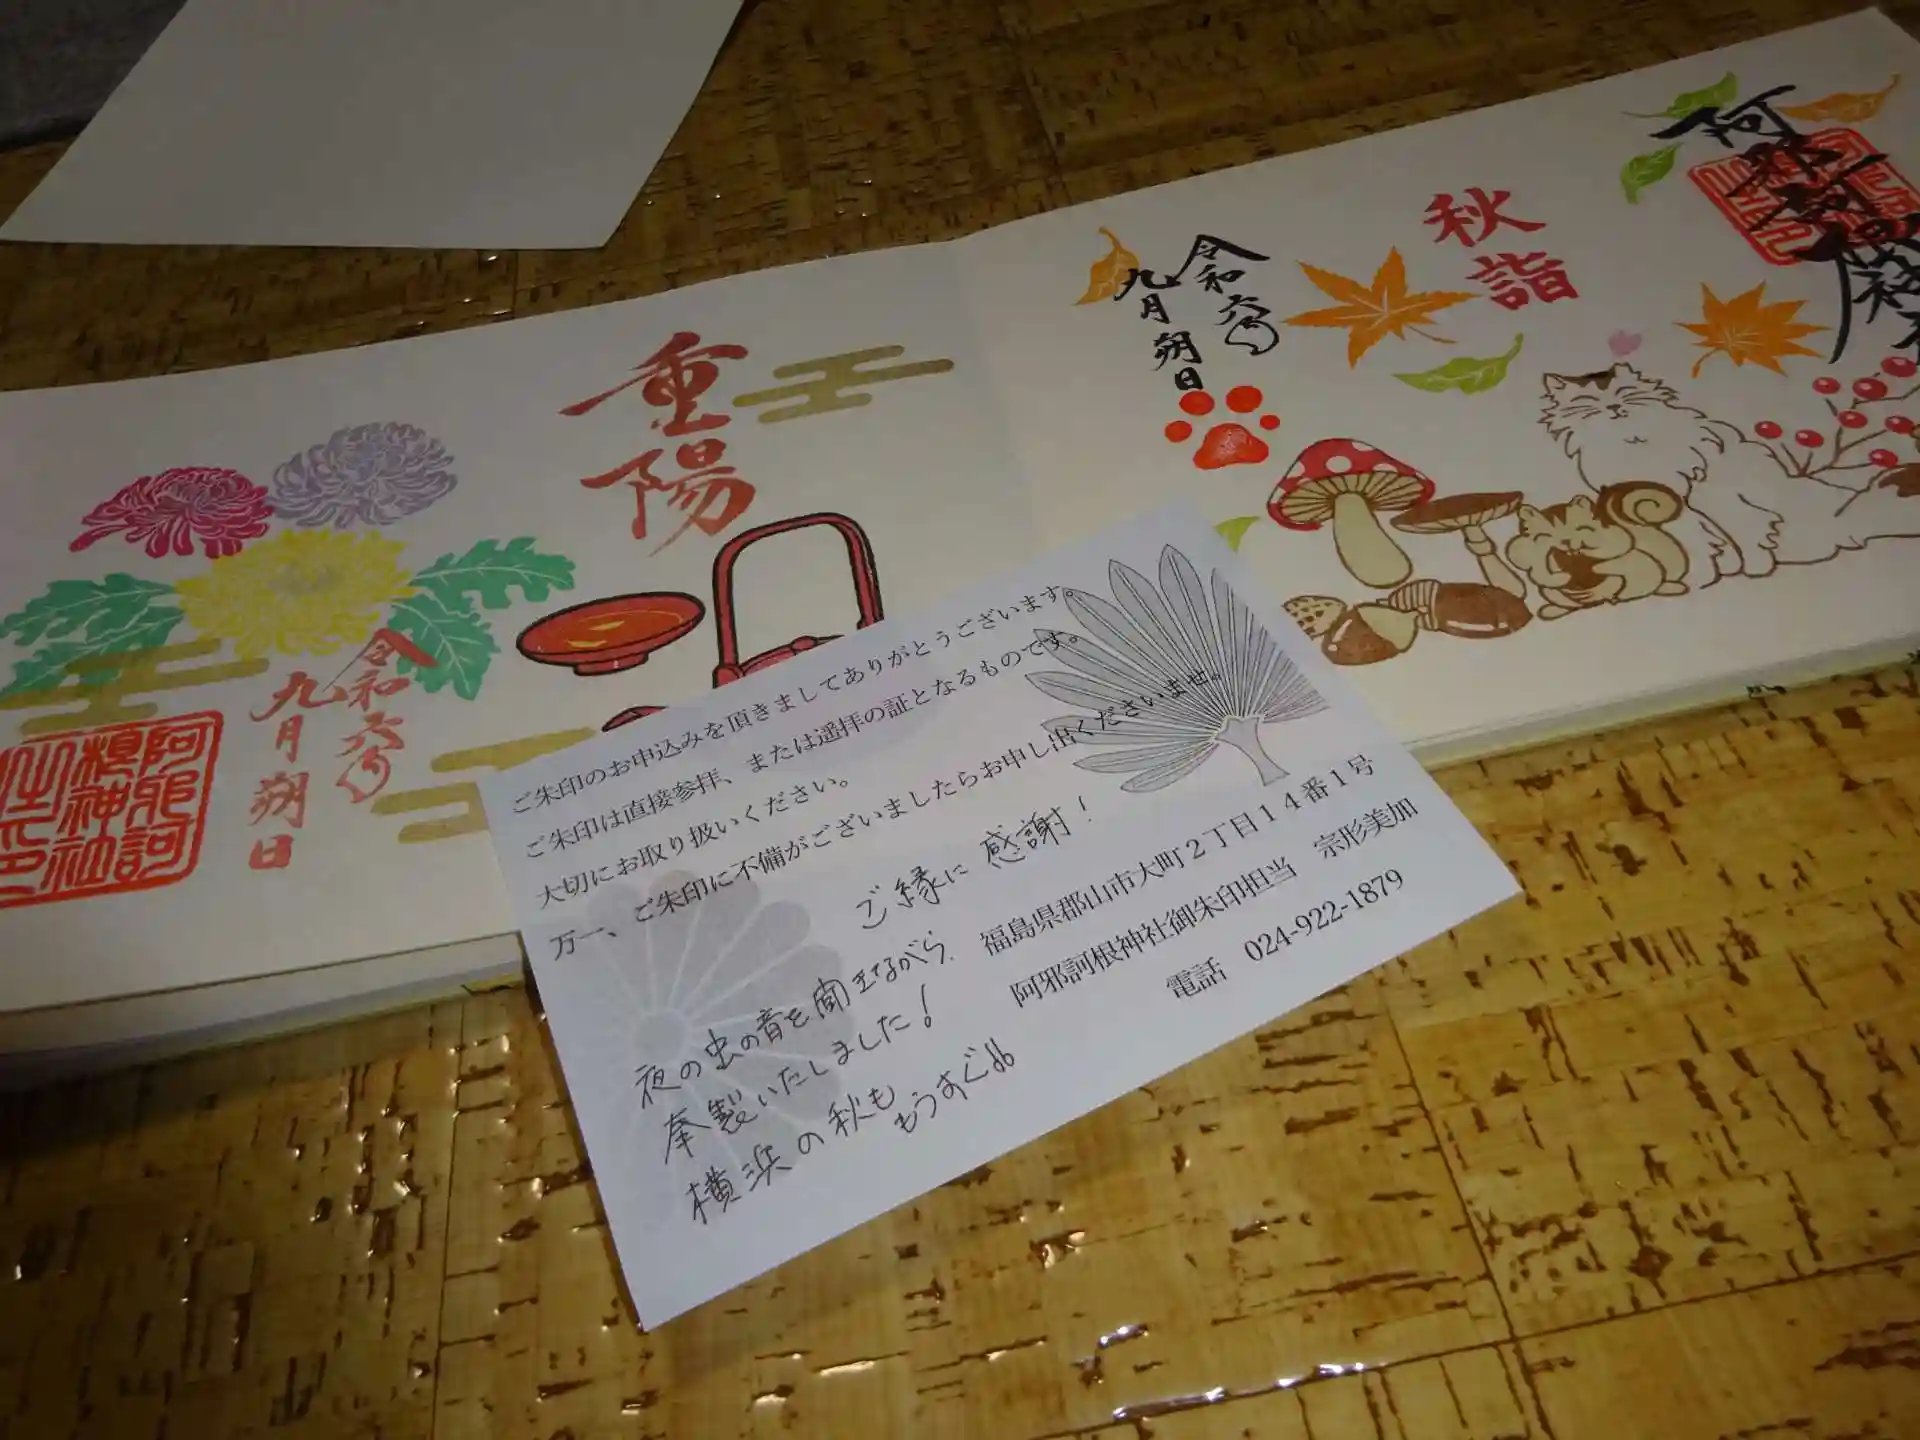 阿邪訶根神社
秋詣
令和六年
九月朔日
重陽
令和六年
九月朔日
阿邪訶
根神社
之印
ご朱印のお申込みを頂きましてありがとうございます。
ご朱印は直接参拝、または遥拝の証となるものです。
大切にお取り扱いください。
万一、ご朱印に不備がございましたらお申し出くださいませ。
ご縁に感謝!
福島県郡山市大町2丁目14番1号
阿邪訶根神社御朱印担当 宗形美加
電話 024-922-1879
夜の虫の音を聞きながら、
奉製いたしました!
横浜の秋も
もうすぐ